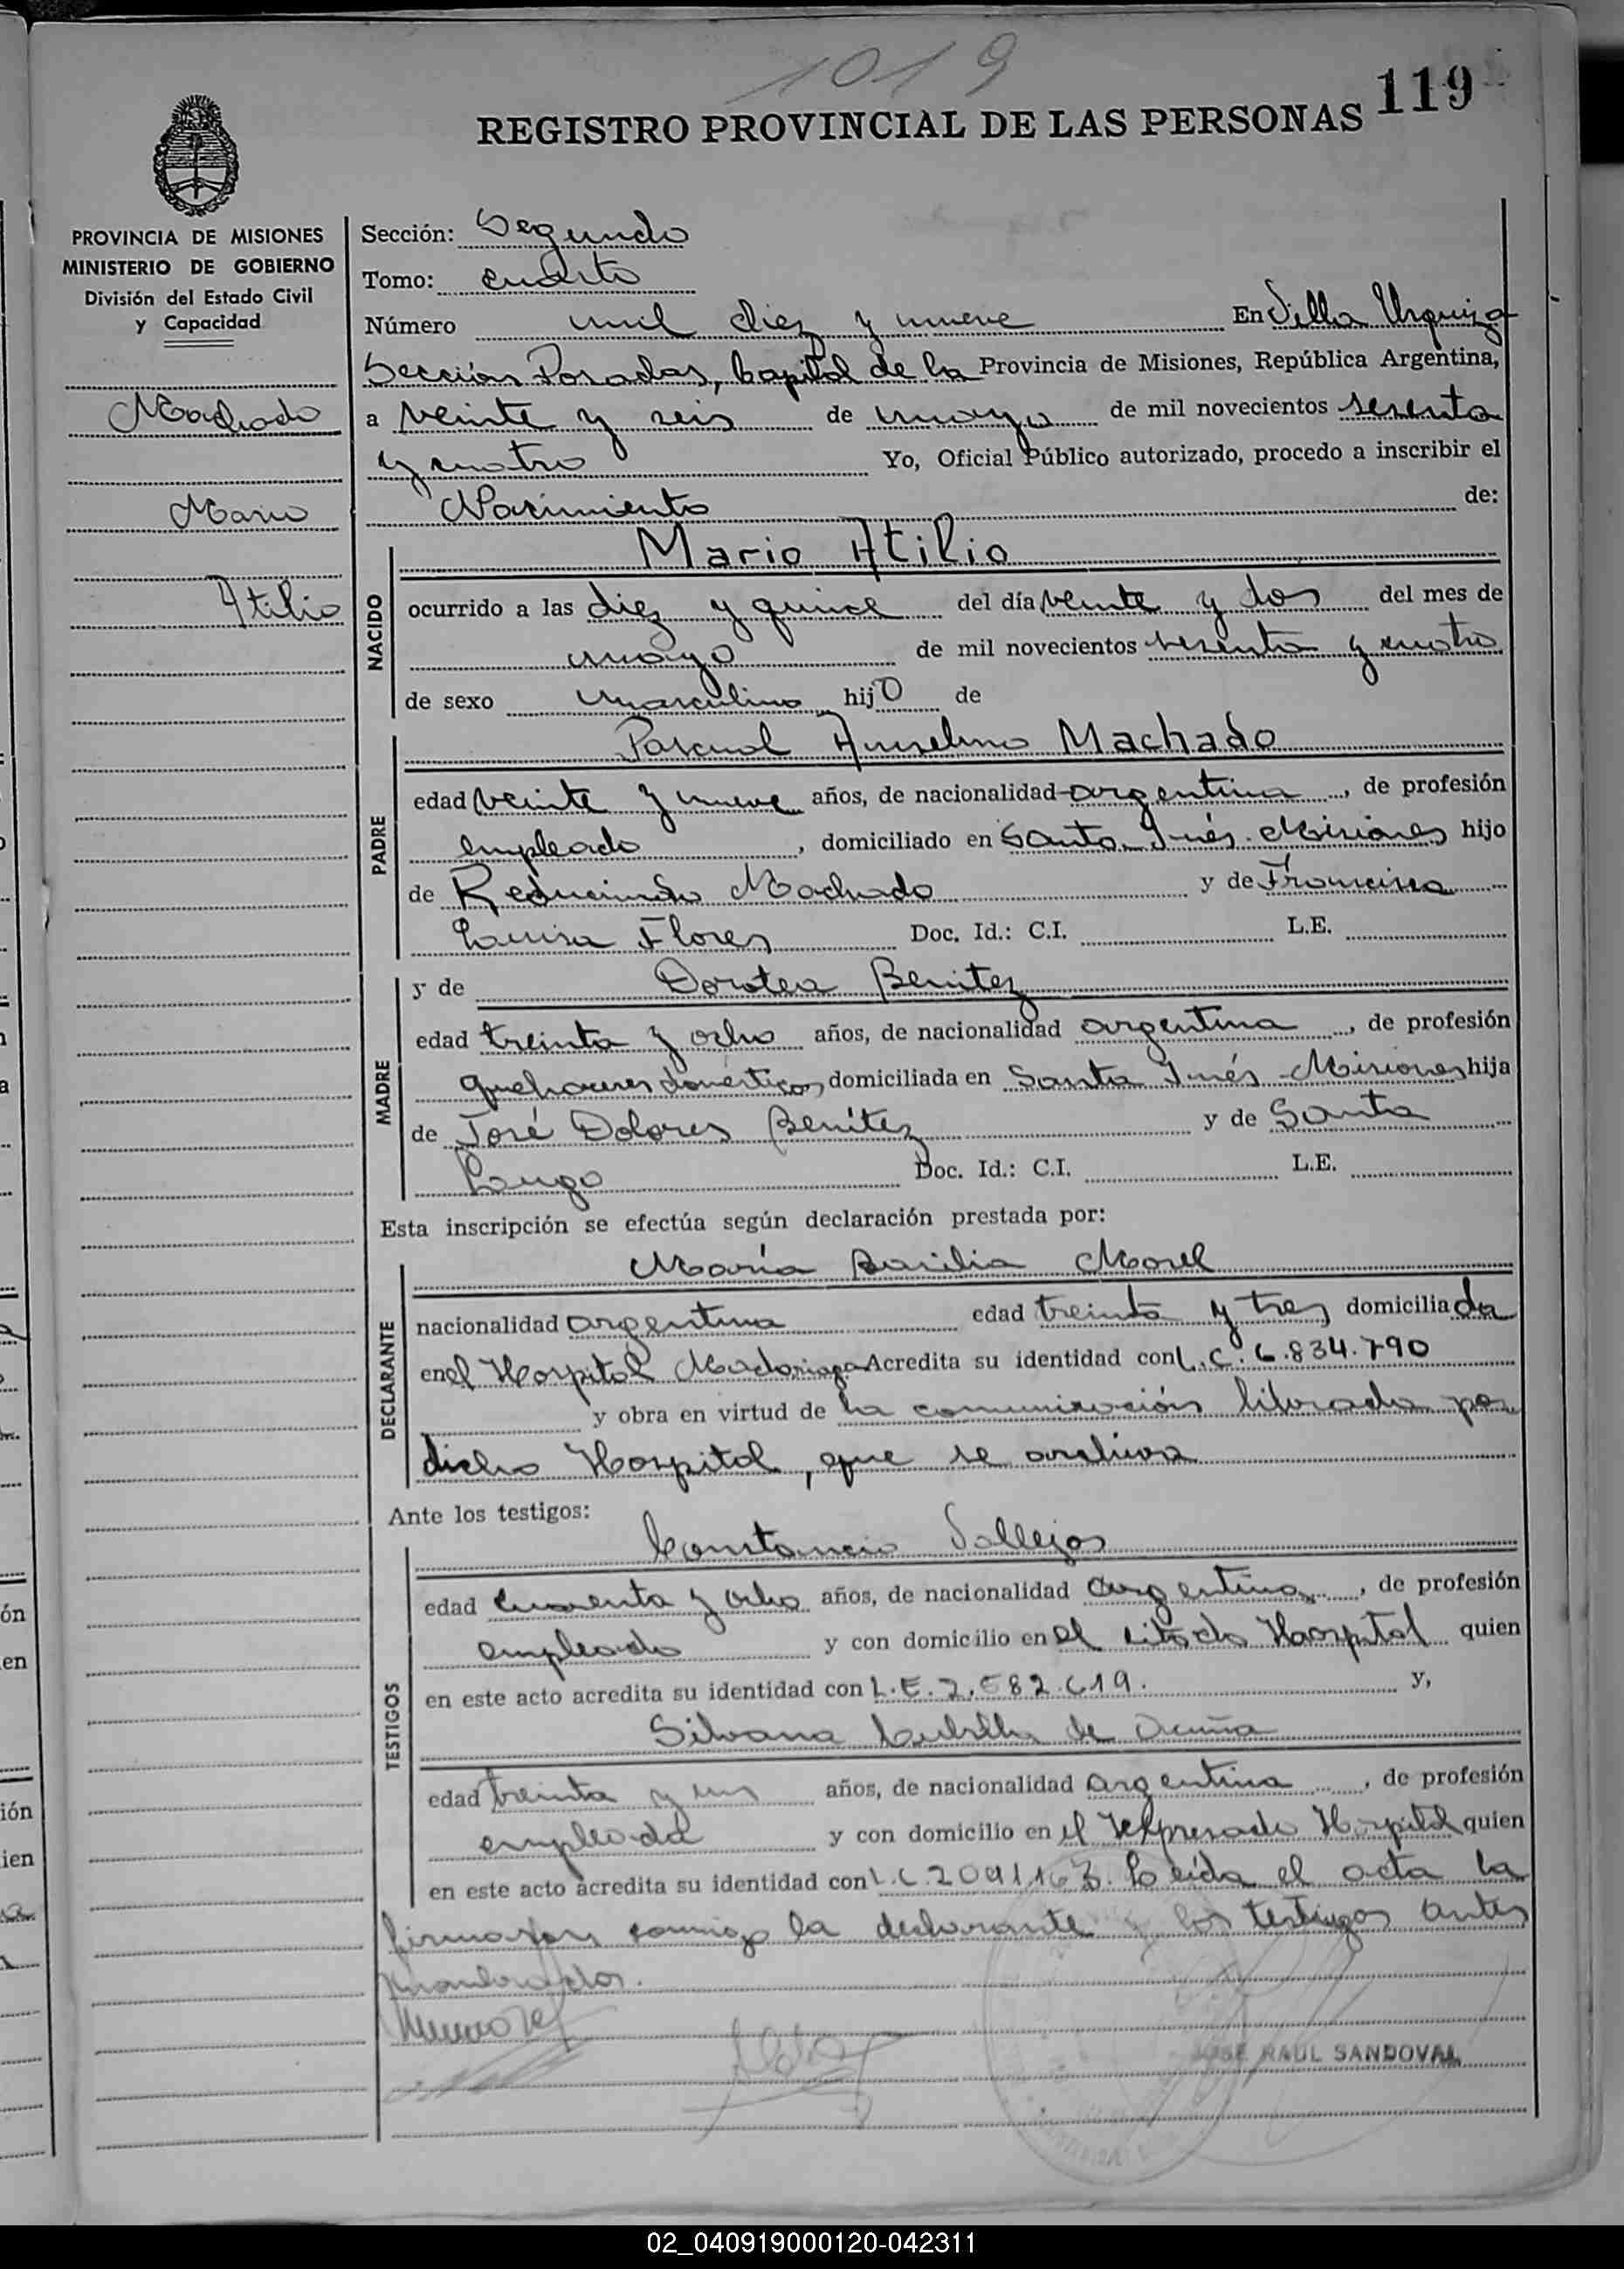 1019
119
REGISTRO PROVINCIAL DE LAS PERSONAS
PROVINCIA DE MISIONES
MINISTERIO DE GOBIERNO
División del Estado Civil
y Capacidad
Machado
Mario
Atilio
Sección: Segundo
Tomo: cuarto
Número mil diez y nueve En Villa Urquiza
Sección Posadas, Capital de la Provincia de Misiones, República Argentina,
a veinte y seis de mayo de mil novecientos sesenta
y cuatro Yo, Oficial Público autorizado, procedo a inscribir el
Nacimiento de:
NACIDO
Mario Atilio
ocurrido a las diez y quince del día veinte y dos del mes de
mayo de mil novecientos sesenta y cuatro
de sexo masculino hijo de
PADRE
Pascual Anselmo Machado
edad veinte y nueve años, de nacionalidad argentina, de profesión
empleado, domiciliado en Santa Inés - Misiones hijo
de Reducindo Machado y de Francisca
Luisa Flores Doc. Id.: C.I. L.E.
MADRE
y de Dorotea Benitez
edad treinta y ocho años, de nacionalidad argentina, de profesión
quehaceres domésticos, domiciliada en Santa Inés - Misiones hija
de José Dolores Benítez y de Santa
Lugo Doc. Id.: C.I. L.E.
Esta inscripción se efectúa según declaración prestada por:
DECLARANTE
María Basilia Morel
nacionalidad argentina edad treinta y tres domiciliada
en el Hospital Madariaga Acredita su identidad con L.C. 6.834.790
y obra en virtud de la comunicación librada por
dicho Hospital, que se archiva
Ante los testigos:
TESTIGOS
Constancio Vallejos
edad cuarenta y ocho años, de nacionalidad argentina, de profesión
empleado y con domicilio en el citado Hospital quien
en este acto acredita su identidad con L.E. y,
Silvana Cubilla de Acuña
edad treinta y un años, de nacionalidad argentina, de profesión
empleada y con domicilio en el expresado Hospital quien
en este acto acredita su identidad con L.C. 2091.163. Leida el acta la
firma por conmigo la declarante y los testigos antes
nombrados.
JOSE RAUL SANDOVAL
02_040919000120-042311